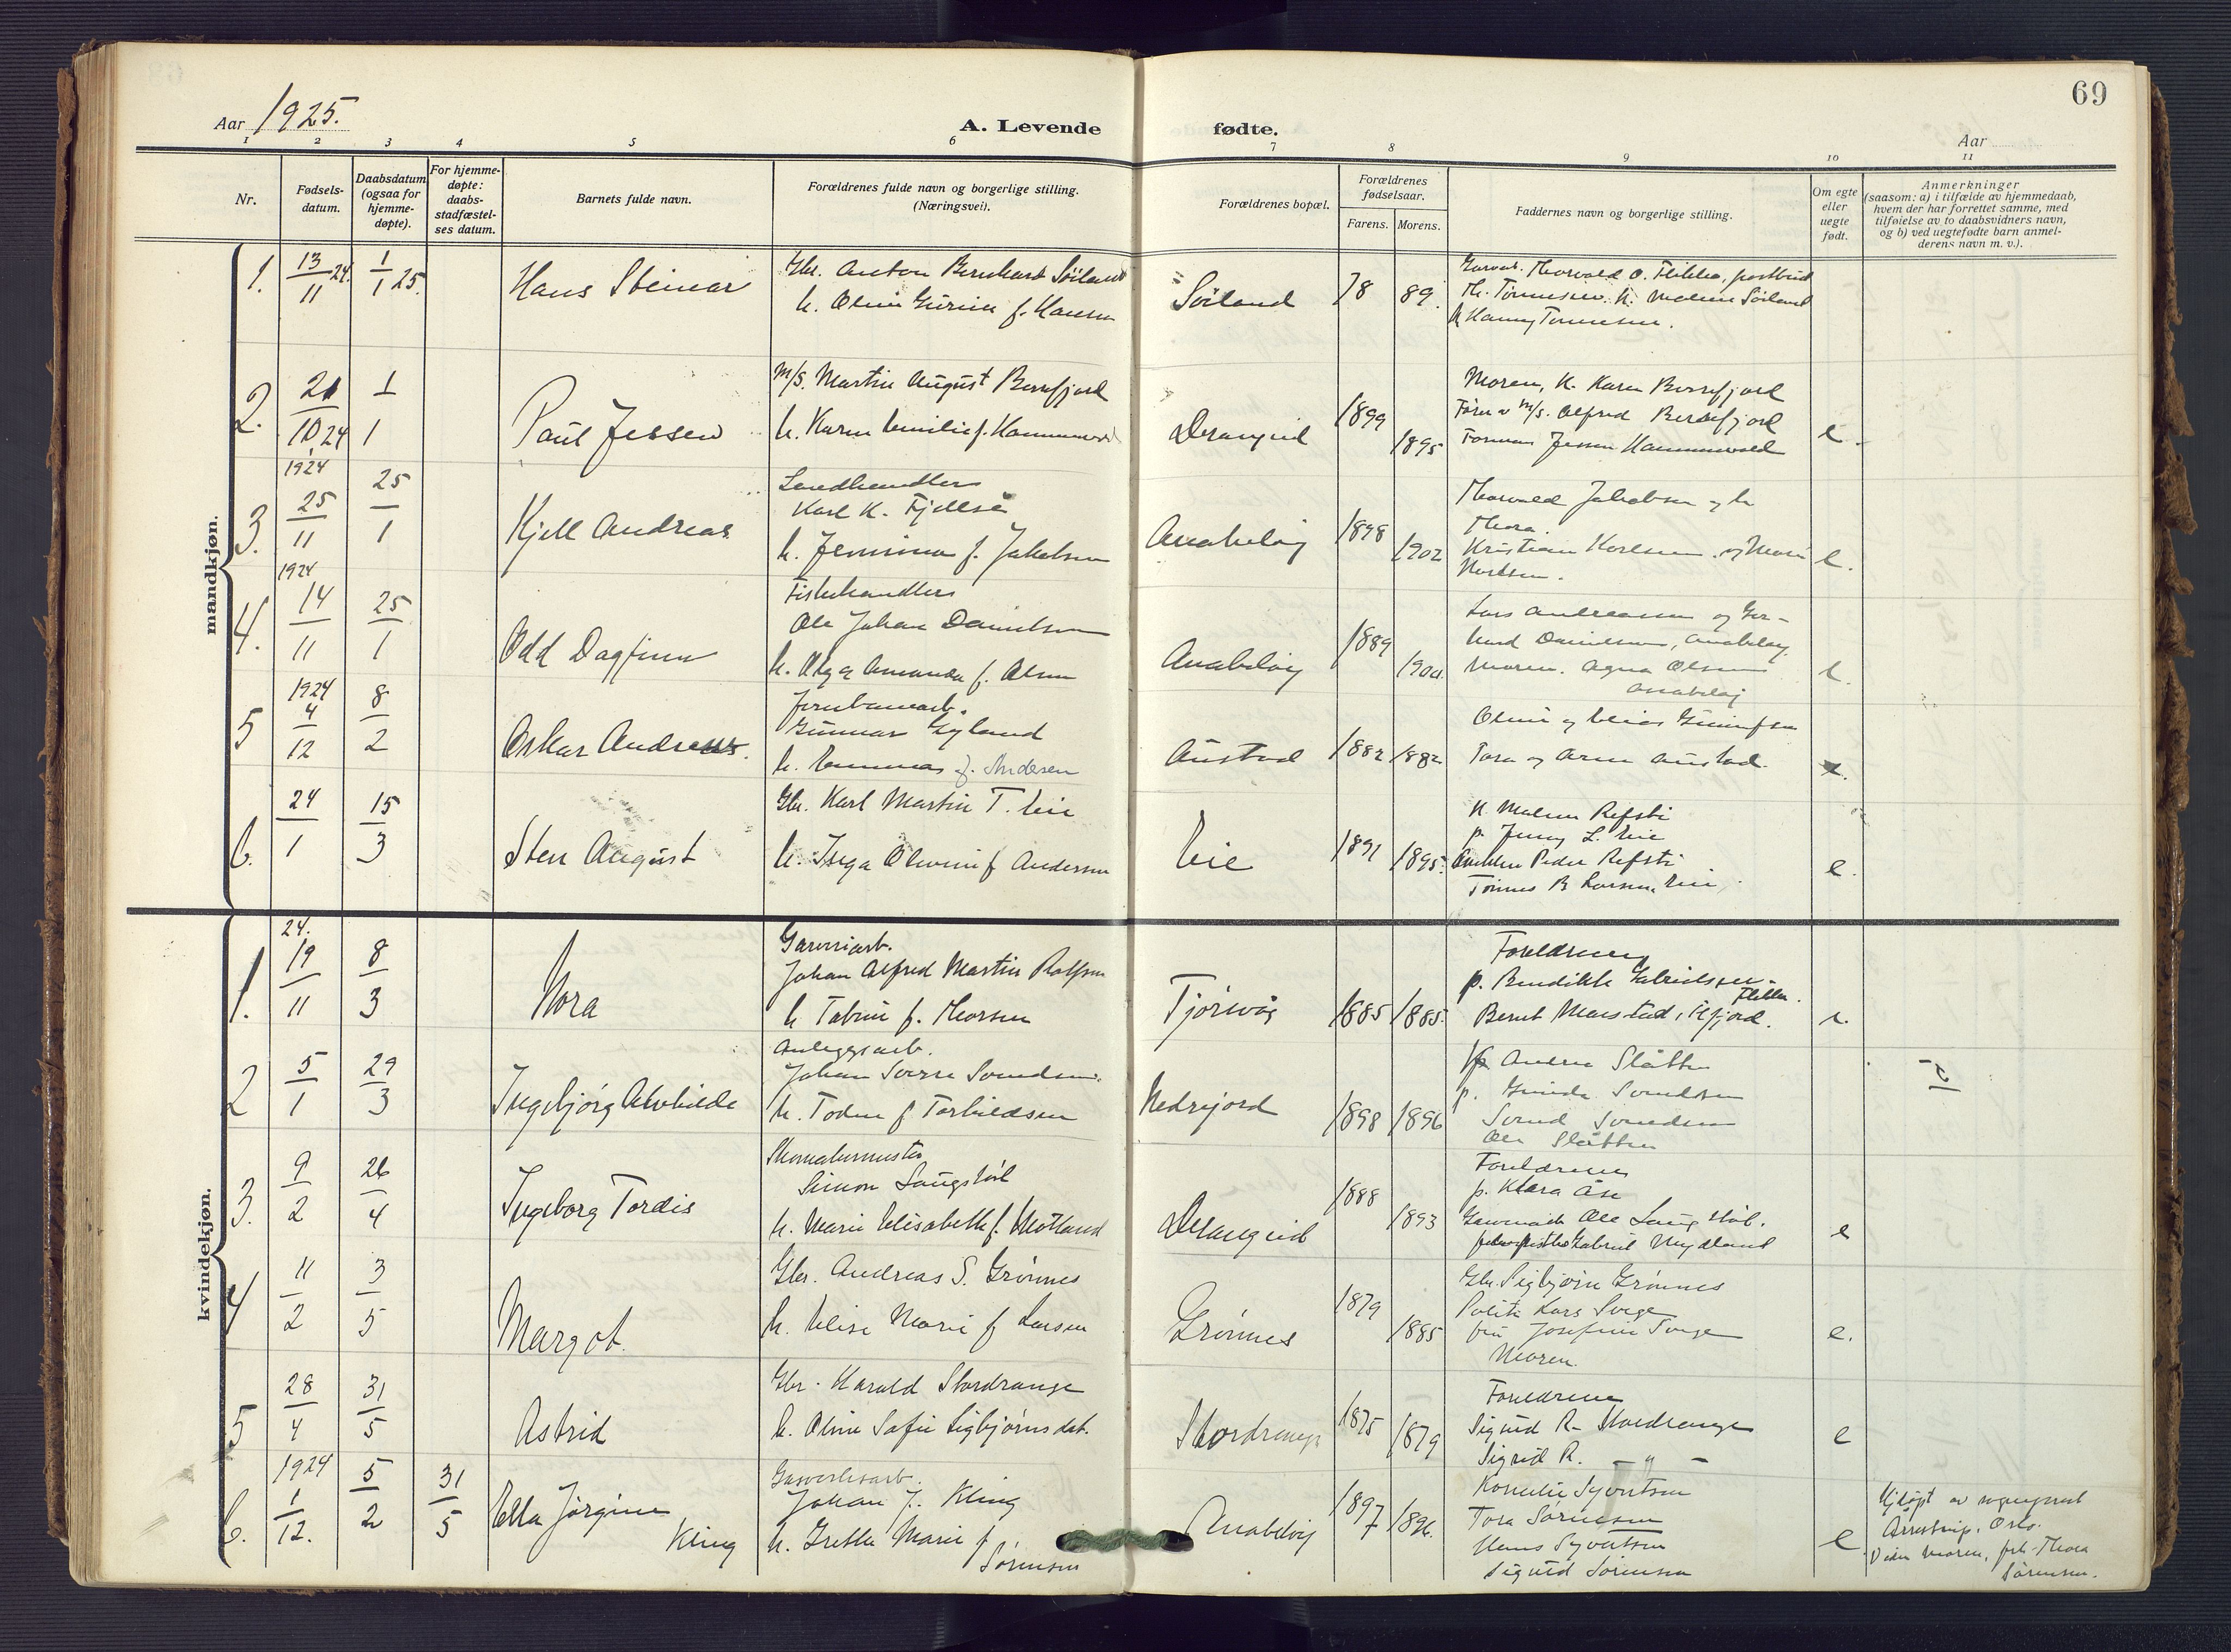 69
Aar 1925.
A. Levende fødte.
Aar
1 2 3 4 5 6 7 8 9 10 11
Nr.
Fødsels-
datum.
Daabsdatum
(ogsaa for
hjemme-
døpte).
For hjemme-
døpte:
daabs-
stadfæstel-
ses datum.
Barnets fulde navn.
Forældrenes fulde navn og borgerlige stilling.
(Næringsvei).
Forældrenes bopæl.
Forældrenes
fødselsaar.
Farens. Morens.
Faddernes navn og borgerlige stilling.
Om egte
eller
uegte
født.
Anmerkninger
(saasom: a) i tilfælde av hjemmedaab,
hvem der har forrettet samme, med
tilføielse av to daabsvidners navn,
og b) ved uegtefødte barn anmel-
derens navn m. v.).
mandkjøn.
1. 13/11 24. 1/1 25.
Hans Steinar
Gbr. Anton Bernhard Söiland
h. f. Hansen
Söiland 78 89.
Thorvald O. Flikka, postbud
Th. Tönnesen. K. Malene Söiland
Tönnesen.
2. 21/10 24 1/1
Paul Jessen
m/s. Martin August Berrefjord
h. Karen Emilie f.
Drangeid 1899 1895
Moren, K. Karen Berrefjord
m/s. Alfred Berrefjord
Jessen
e.
3. 1924 25/11 25/1
Kjell Andreas
Landhandler
Karl K. Fjellså
h. Jemima f. Jakobsen
Anabeløy 1898 1902
Thorvald Jakobsen og h
Thora.
Kristian Karlsen og
e.
4. 1924 14/11 25/1
Odd Dagfinn
Fiskehandler
Ole Johan Danielsen
h. Olga Amanda f. Olsen
Anabeløy 1889
Lars Andreassen og Ger-
hard Danielsen, Anabeløy.
Moren. Agna Olsen
Anabeløy
e.
5 1924 4/12 8/2
Oskar Andreas.
Jernbanearb.
Gunnar Gyland
h. f. Andersen
Austad 1882 1882
Tora og Arne Austad.
6. 24/1 15/3
Sten August
Gbr. Karl Martin T. Eie
h. Inga Olivine f Andersen
Eie 1891 1895.
K. Malene Refsti
p. Jenny L. Eie
Peder Refsti
Tönnes B Larsen, Eie.
e.
kvindekjøn.
1. 24. 19/11 8/3
Nora
Garveriarb.
Johan Alfred Martin Rolfsen
h Tobine f. Thorsen
Tjörsvåg 1885 1885.
Foreldrene
p. Bendikte Gabrielsen
Flikka.
Bernt
e.
2 5/1 29/3
Ingebjørg Alvhilde
Anlegsarb.
Johan Sverre Svendsen.
h. Todne f Torkildsen
Nedrejord 1898 1896
Andrea Slåtten
p. Gunda Svendsen
Svend Svendsen
Ole Slåtten
3. 9/2 26/4
Ingeborg Tordis
Skomakermester
Simon Haugstöl
h. Marie Elisabeth f.
Drangeid 1888 1893
Foreldrene
p. Klara Åse
Ole
Gabriel Mydland
e
4 11/2 3/5
Margot.
Gbr. Andreas S. Grönnes
h. Elise Marie f Larsen
Grönnes 1879 1885
Gbr. Sigbjörn Grönnes
Politi Lars Svege
fru Josefine Svege
Moren.
e.
5 28/4 31/5
Astrid
Gbr. Harald Stordrange
h. Oline Sofie Sigbjørnsdat.
Stordrange 1875 1879
Foreldrene
Sigurd R. Stordrange
Sigrid R. — „ —
e
6. 1924 1/12. 5/2 31/5
Ella Jørgine
Kling
Gasverksarb.
Johan J. Kling
h. Grethe Marie f
Sørensen
Anabeløy 1897 1896.
Kornelie Syvertsen
Tora Sørensen
Hans Syvertsen
Sigurd Sørensen
e
Hj.døpt av sogneprest
Oslo.
Moren, frk. Thora
Sørensen.